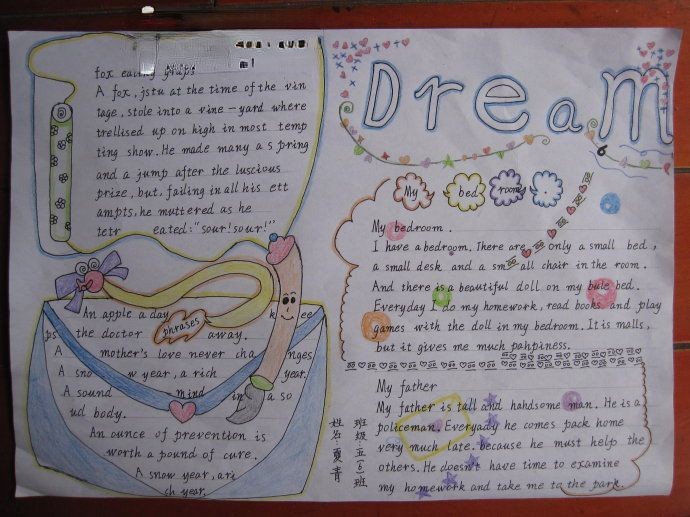 fox eating graps
A fox, jstu at the time of the vin
tage, stole into a vine-yard where
trellised up on high in most temp
ting show. He made many a s pring
and a jump after the luscious
prize, but, failing in all his ett
ampts, he muttered as he
tetr eated: "sour! sour!"
An apple a day k ee
ps the doctor away.
phrases
A mother's love never cha nges
A sno w year, a rich year.
A sound mind in a so
ud body.
An ounce of prevention is
worth a pound of cure.
A snow year, ari
ch year.
Dream
My bed room .
My bedroom.
I have a bedroom. There are only a small bed,
a small desk and a small chair in the room.
And there is a beautiful doll on my bule bed.
Everyday I do my homework, read books and play
games with the doll in my bedroom. It is malls,
but it gives me much pahpiness.
My father
My father is tall and handsome man. He is a
policeman. Everyady he comes pack home
very much late. because he must help the
others. He doesn't have time to examine
my homework and take me to the park.
班级:五(6)班
姓名:夏青